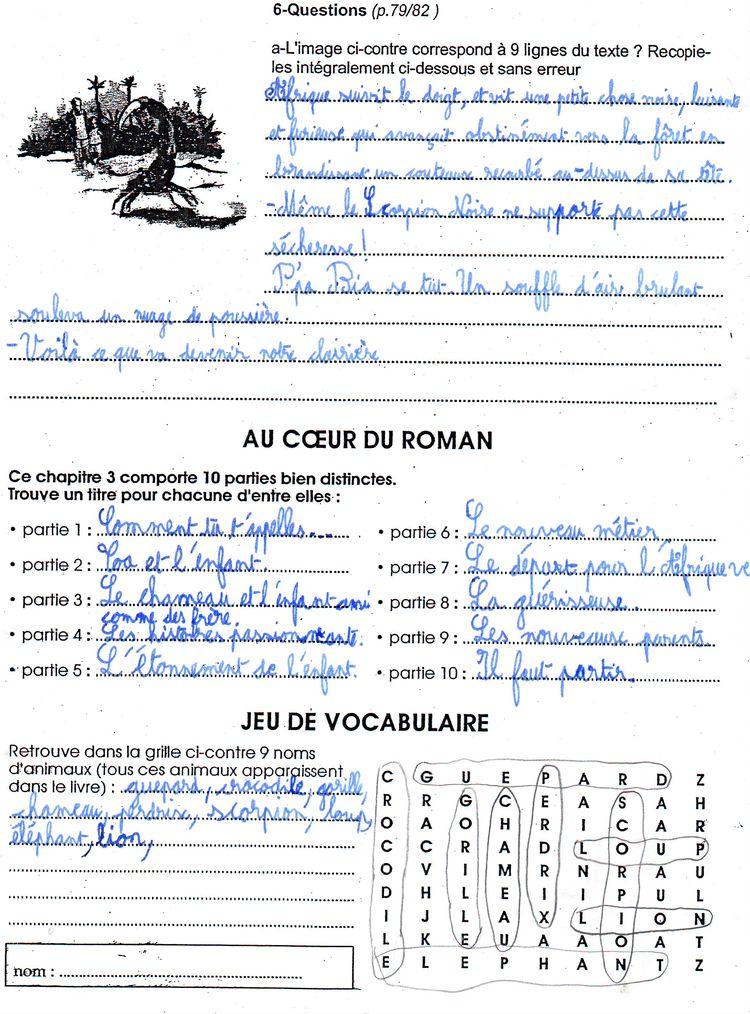 6-Questions (p.79/82 )
a-L'image ci-contre correspond à 9 lignes du texte ? Recopie-
les intégralement ci-dessous et sans erreur
Afrique suivit le doigt, et vit une petite chose noire, luisante
et furieuse qui avançait obstinément vers la fôret en
brandissant un couteaux recourbé au-dessus de sa tête.
-Même le Scorpion Noire ne supporte pas cette
sécheresse !
P'pa Bia se tut. Un souffle d'aire brulant
souleva un nuage de poussière.
-Voilà ce que va devenir notre clairière
AU CŒUR DU ROMAN
Ce chapitre 3 comporte 10 parties bien distinctes.
Trouve un titre pour chacune d'entre elles :
• partie 1 : Comment tu t'appelles...
• partie 2 : Toa et l'énfant.
• partie 3 : Le chameau et l'énfant ami
comme des frère.
• partie 4 : Les histoires passionnante.
• partie 5 : L'étonnement de l'énfant.
• partie 6 : Le nouveau métier
• partie 7 : Le départ pour l'Afrique ve
• partie 8 : La guérisseuse.
• partie 9 : Les nouveause parents.
• partie 10 : Il faut partir.
JEU DE VOCABULAIRE
Retrouve dans la grille ci-contre 9 noms
d'animaux (tous ces animaux apparaissent
dans le livre) : guepard, crocodile, gorille,
chameau, perdrix, scorpion, loup,
éléphant, lion,
nom :
C G U E P A R D Z
R R G C E A S A H
O A O H R I C A R
C C R A D L O U P
O V I M R N R A U
D H L E I I P U L
I J L A X L I O N
L K E U A A O A T
E L E P H A N T Z